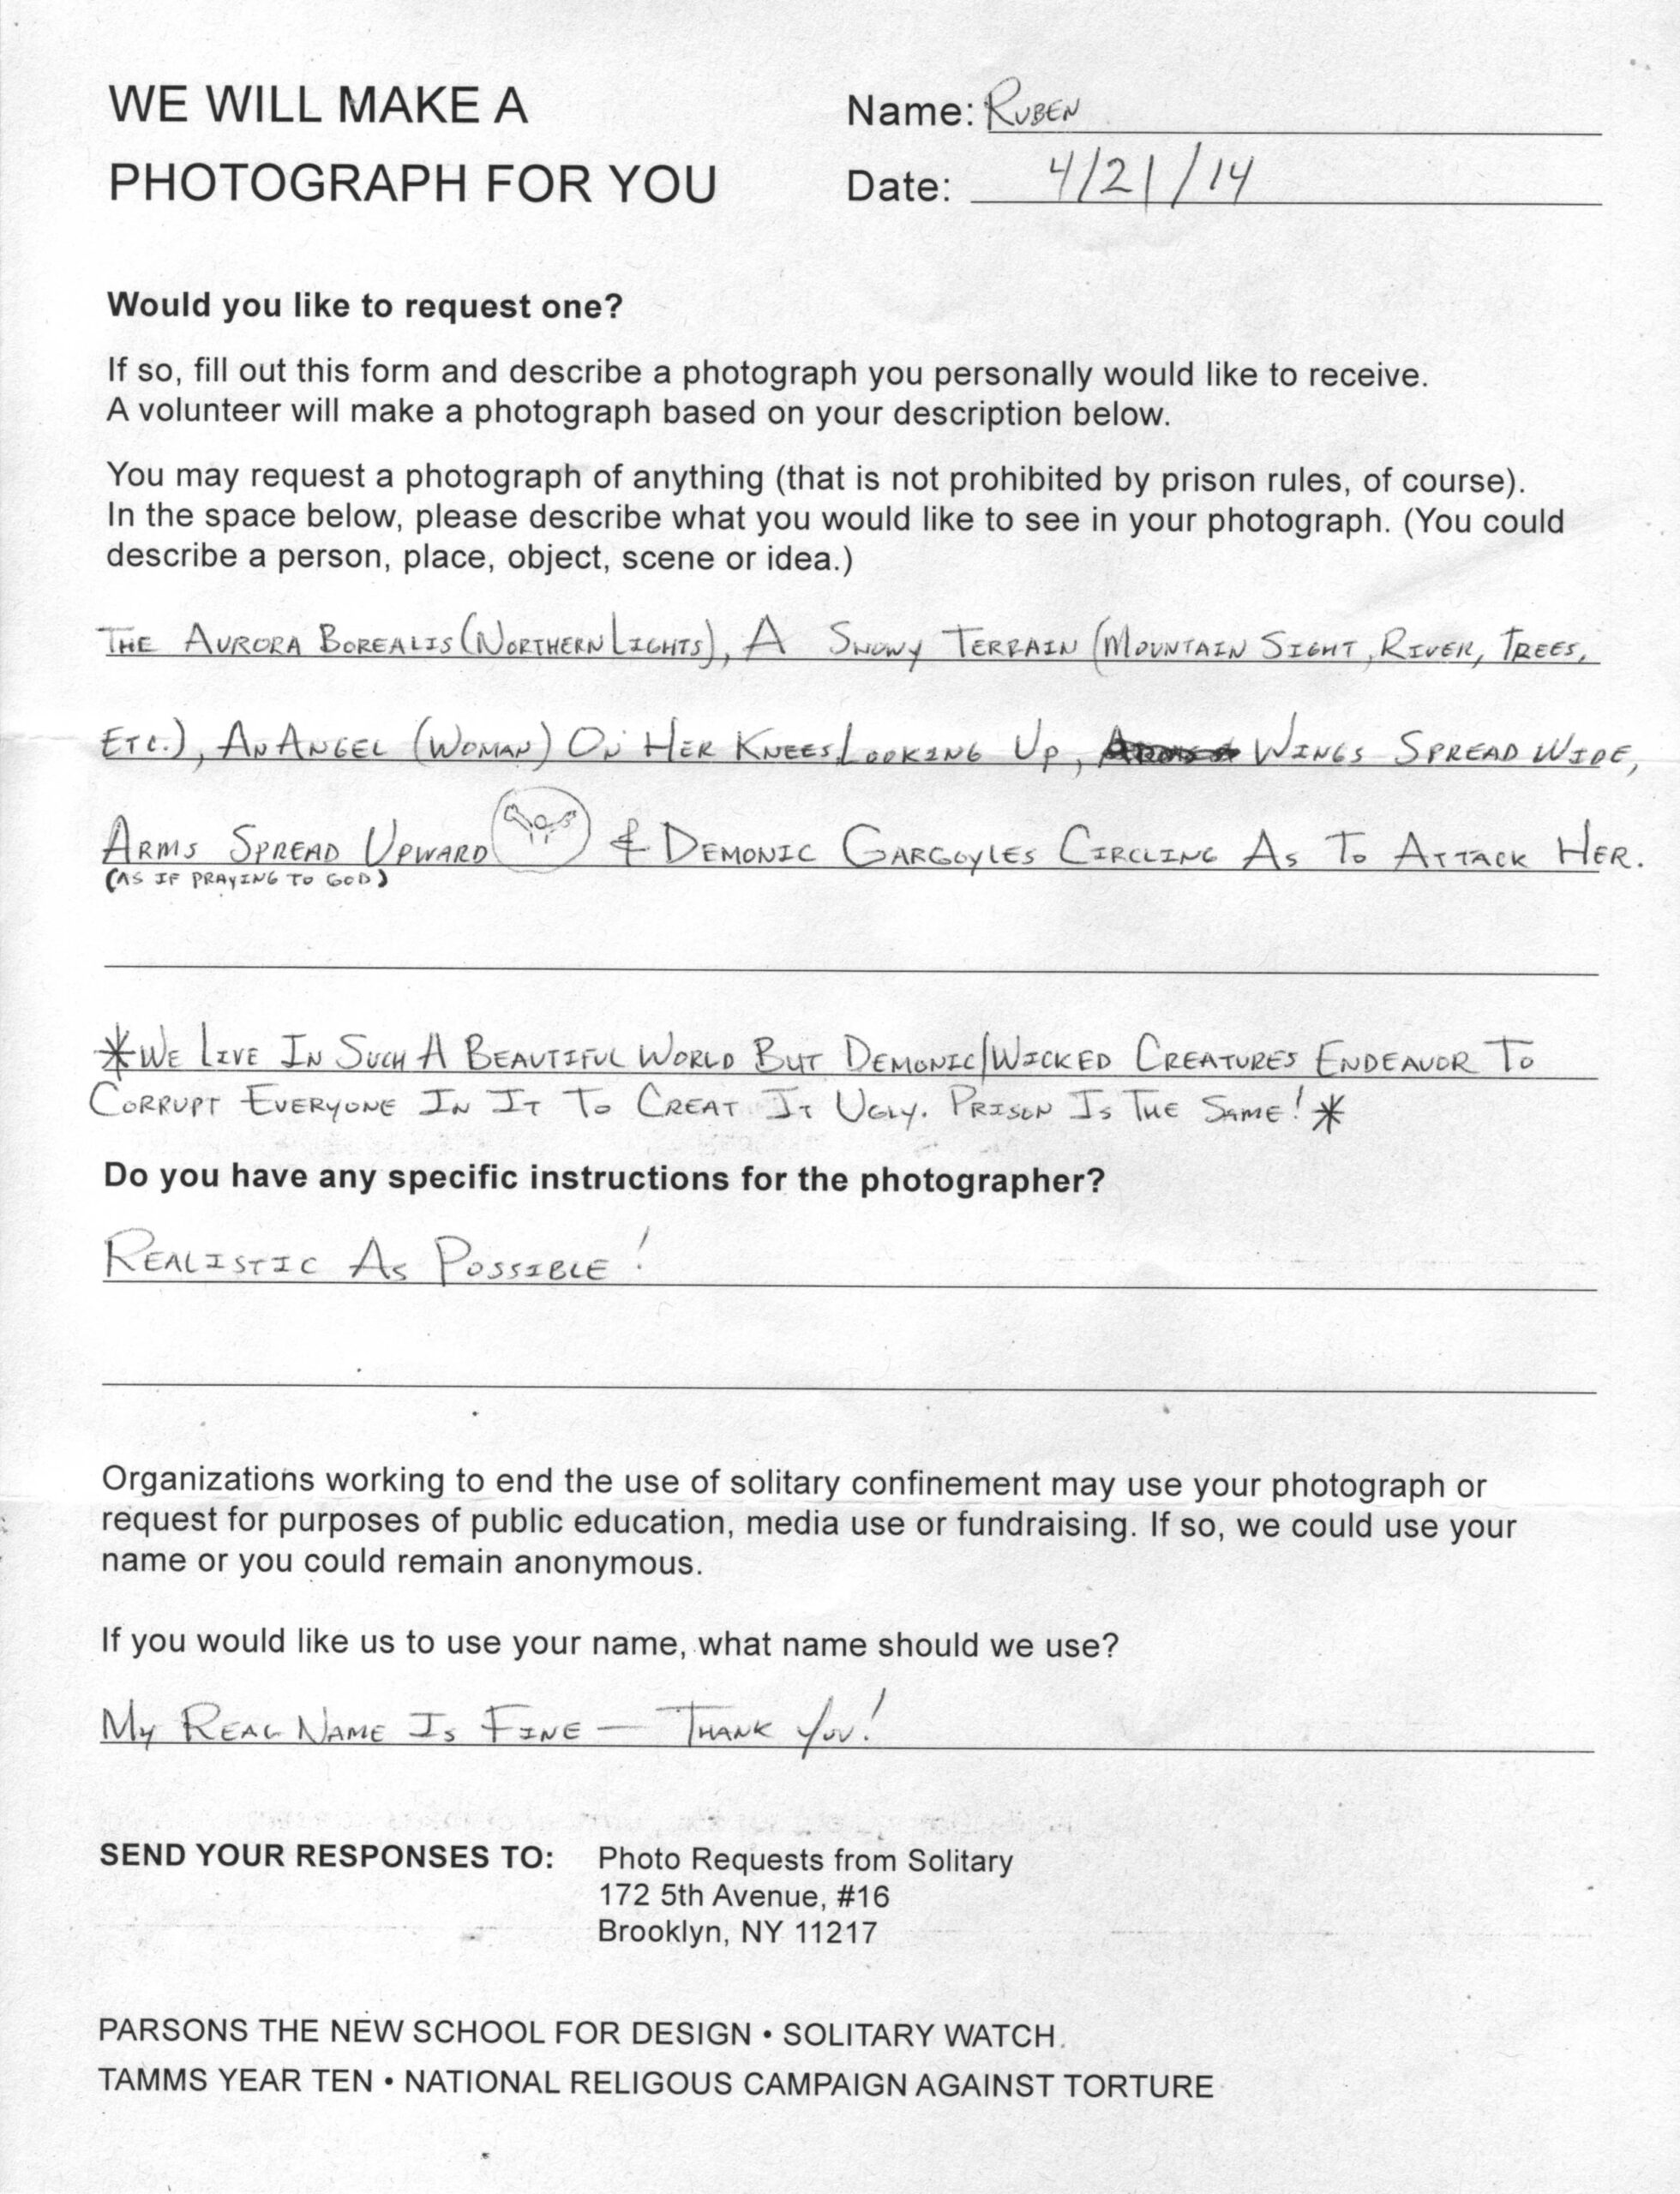 WE WILL MAKE A
PHOTOGRAPH FOR YOU
Name: RUBEN
Date: 4/21/14
Would you like to request one?
If so, fill out this form and describe a photograph you personally would like to receive.
A volunteer will make a photograph based on your description below.
You may request a photograph of anything (that is not prohibited by prison rules, of course).
In the space below, please describe what you would like to see in your photograph. (You could
describe a person, place, object, scene or idea.)
THE AURORA BOREALIS (NORTHERN LIGHTS), A SNOWY TERRAIN (MOUNTAIN SIGHT, RIVER, TREES,
ETC.), AN ANGEL (WOMAN) ON HER KNEES LOOKING UP, WINGS SPREAD WIDE,
ARMS SPREAD UPWARD & DEMONIC GARGOYLES CIRCLING AS TO ATTACK HER.
(AS IF PRAYING TO GOD)
*WE LIVE IN SUCH A BEAUTIFUL WORLD BUT DEMONIC/WICKED CREATURES ENDEAVOR TO
CORRUPT EVERYONE IN IT TO CREAT IT UGLY. PRISON IS THE SAME!*
Do you have any specific instructions for the photographer?
REALISTIC AS POSSIBLE!
Organizations working to end the use of solitary confinement may use your photograph or
request for purposes of public education, media use or fundraising. If so, we could use your
name or you could remain anonymous.
If you would like us to use your name, what name should we use?
MY REAL NAME IS FINE — THANK YOU!
SEND YOUR RESPONSES TO: Photo Requests from Solitary
172 5th Avenue, #16
Brooklyn, NY 11217
PARSONS THE NEW SCHOOL FOR DESIGN • SOLITARY WATCH
TAMMS YEAR TEN • NATIONAL RELIGOUS CAMPAIGN AGAINST TORTURE